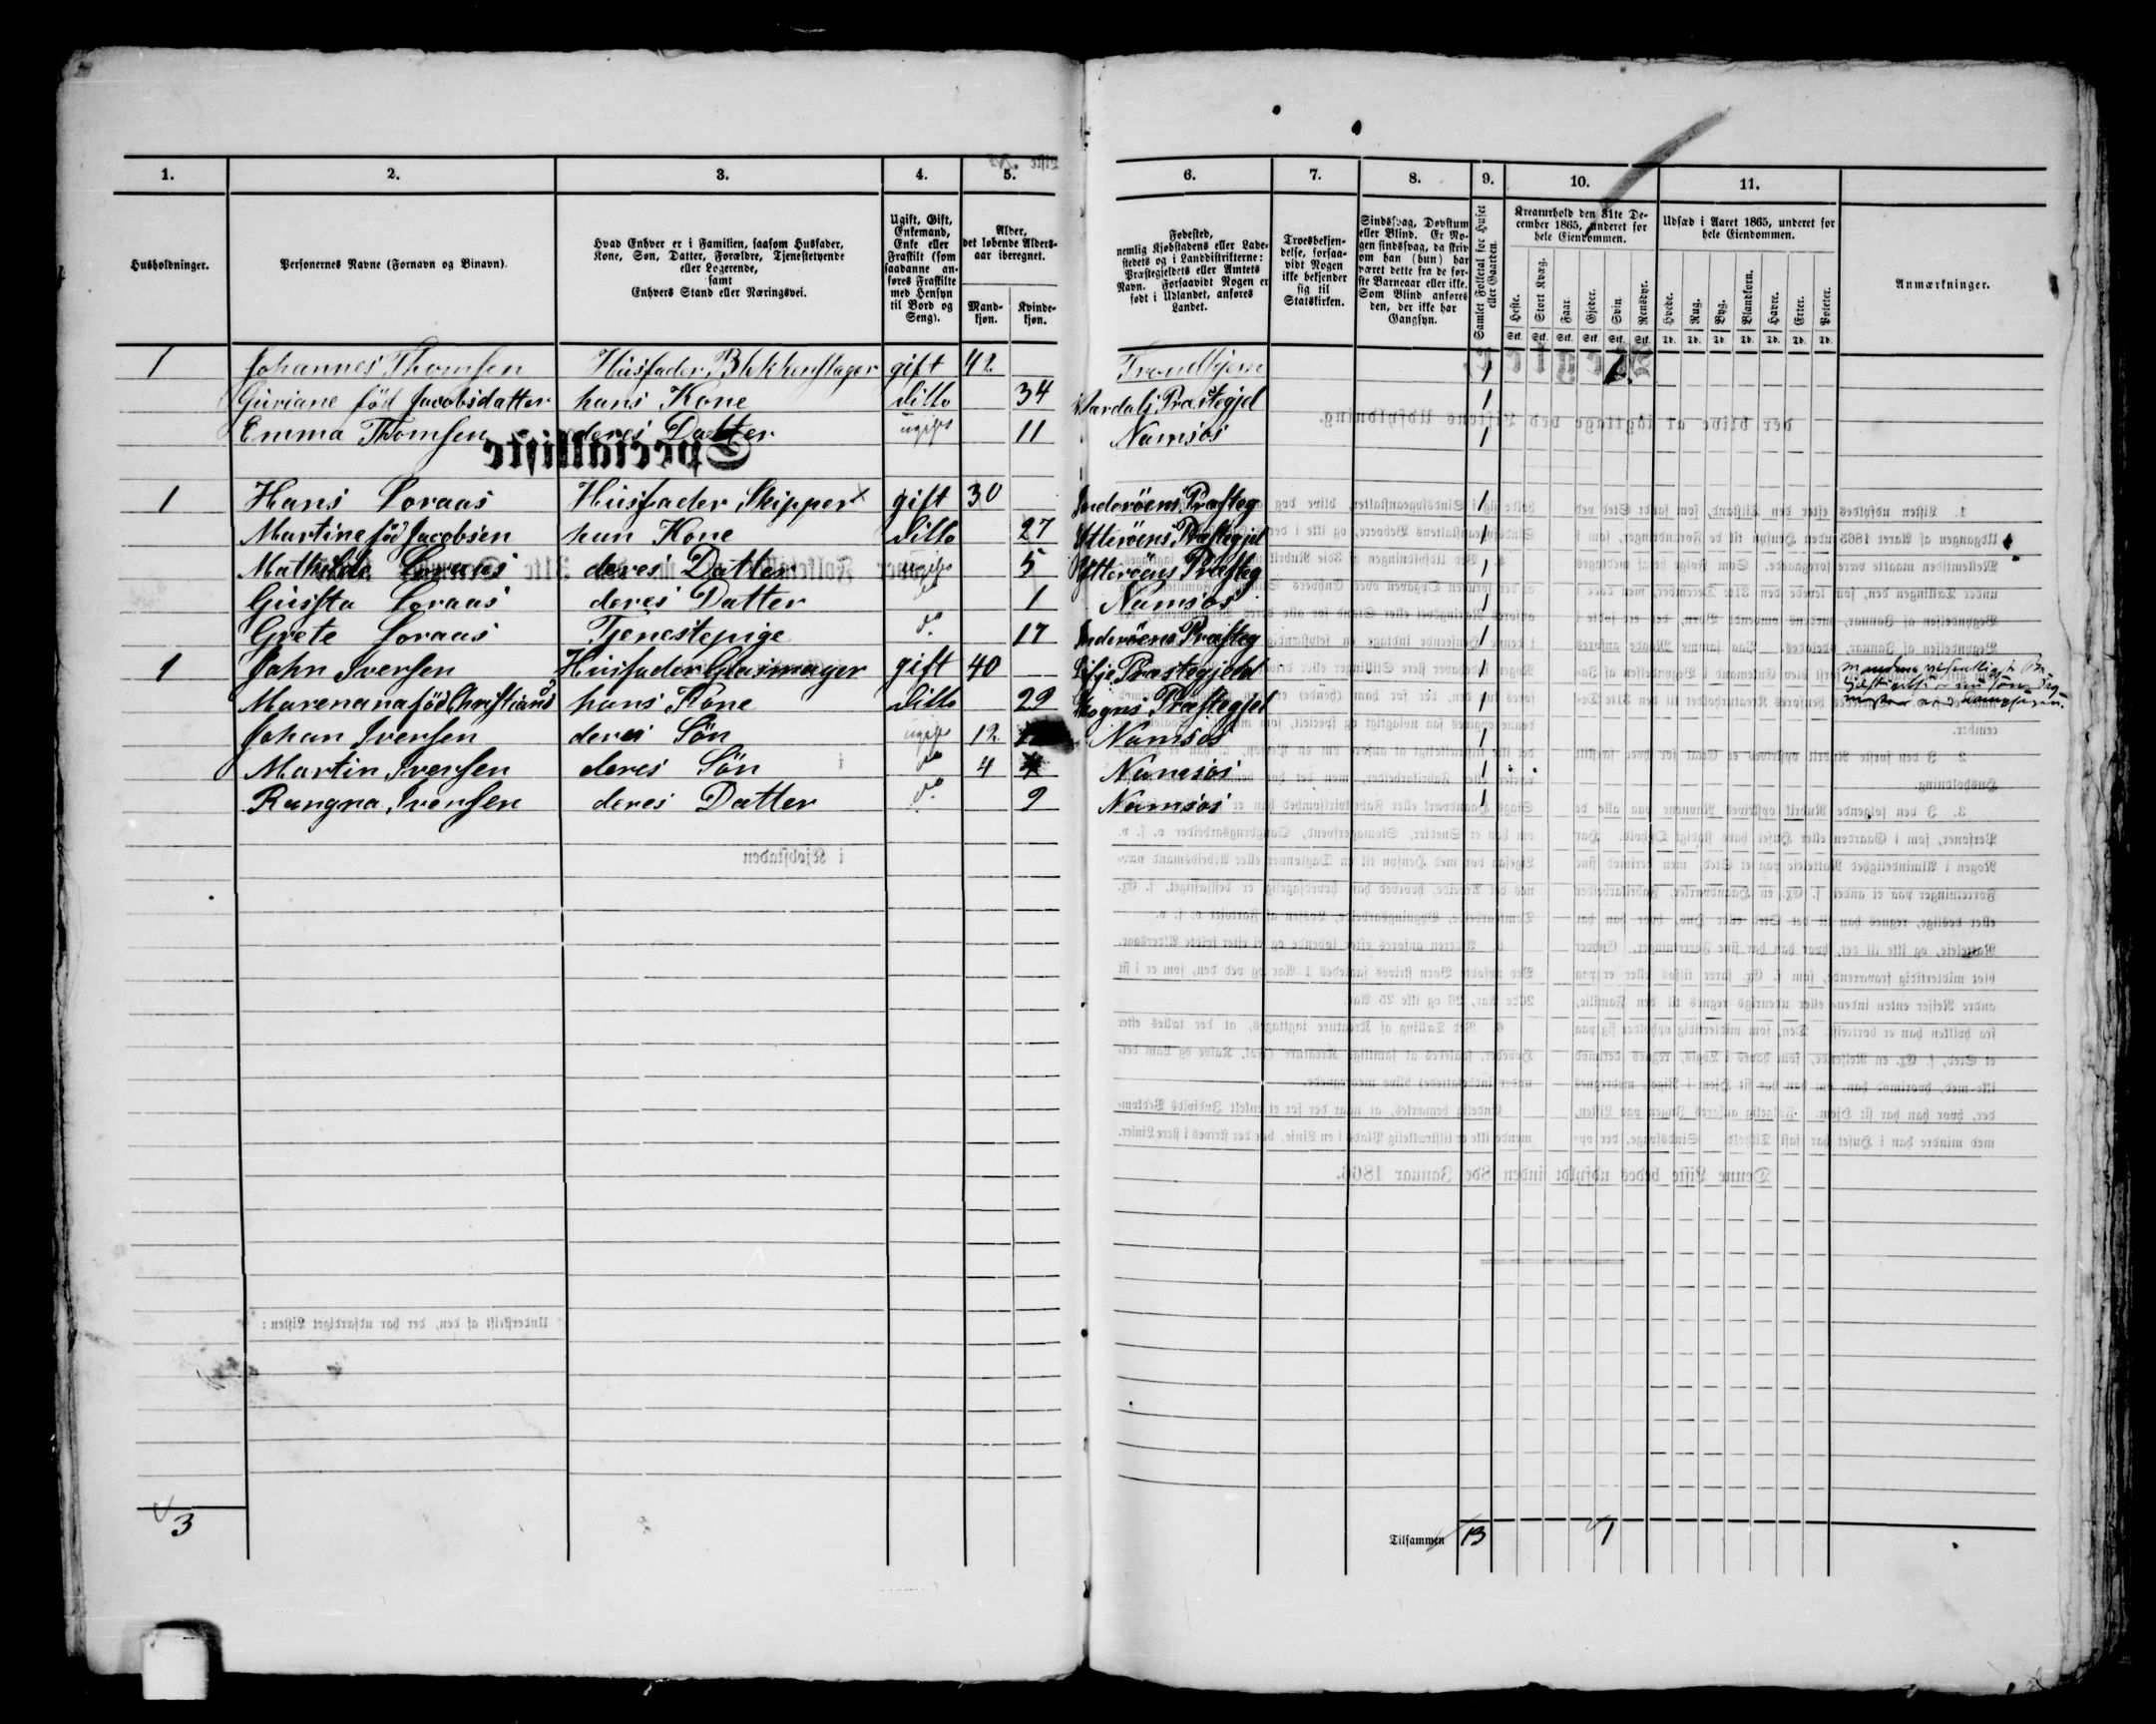 1. 2. 3. 4. 5. 6. 7. 8. 9. 10. 11.
Husholdninger.
Personernes Navne (Fornavn og Binavn).
Hvad Enhver er i Familien, saasom Husfader,
Kone, Søn, Datter, Forældre, Tjenestetyende
eller Logerende,
samt
Enhvers Stand eller Næringsvei.
Ugift, Gift,
Enkemand,
Enke eller
Fraskilt (som
saadanne an-
føres Fraskilte
med Hensyn
til Bord og
Seng).
Alder,
det løbende Alders-
aar iberegnet.
Mand-
kjøn.
Kvinde-
kjøn.
Fødested,
nemlig Kjøbstadens eller Lade-
stedets og i Landdistrikterne:
Præstegjeldets eller Amtets
Navn. Forsaavidt Nogen er
født i Udlandet, anføres
Landet.
Troesbekjen-
delse, forsaa-
vidt Nogen
ikke bekjender
sig til
Statskirken.
Sindssvag, Døvstum
eller Blind. Er No-
gen sindssvag, da skriv
om han (hun) har
været dette fra de før-
ste Barneaar eller ikke.
Som Blind anføres
den, der ikke har
Gangsyn.
Samlet Folketal for Huset
eller Gaarden.
Kreaturhold den 31te De-
cember 1865, underet for
hele Eiendommen.
Heste. Stort Kvæg. Faar. Gjeder. Svin. Rensdyr.
Stk. Stk. Stk. Stk. Stk. Stk.
Udsæd i Aaret 1865, underet for
hele Eiendommen.
Hvede. Rug. Byg. Blandkorn. Havre. Erter. Poteter.
Td. Td. Td. Td. Td. Td. Td.
Anmærkninger.
1 Johannes Thomsen Husfader, Blikkenslager gift 42 Trondhjem 1 1
Guriane föd Jacobsdatter hans Kone ditto 34 Præstegjel 1
Emma Thomsen deres Datter ugift 11 Namsos 1
1 Hans Loraas Husfader Skipper x gift 30 Inderöens Præsteg 1
Martine föd Jacobsen han Kone ditto 27 Ytteröens Præstegjel 1
Mathilde Loraas deres Datter ugift 5 Ytteröens Præsteg 1
Gussta Loraas deres Datter do 1 Namsos 1
Grete Loraas Tjenestepige do 17 Inderöens Præsteg 1
1 John Iversen Husfader Glasmager gift 40 Præstegjeld 1
Marenana föd Christians hans Kone ditto 29 Præstegjel 1
Johan Iversen deres Sön ugift 12 Namsos 1
Martin Iversen deres Sön do 4 Namsos 1
Rangna Iversen deres Datter do 9 Namsos 1
3 Tilsammen 13 1